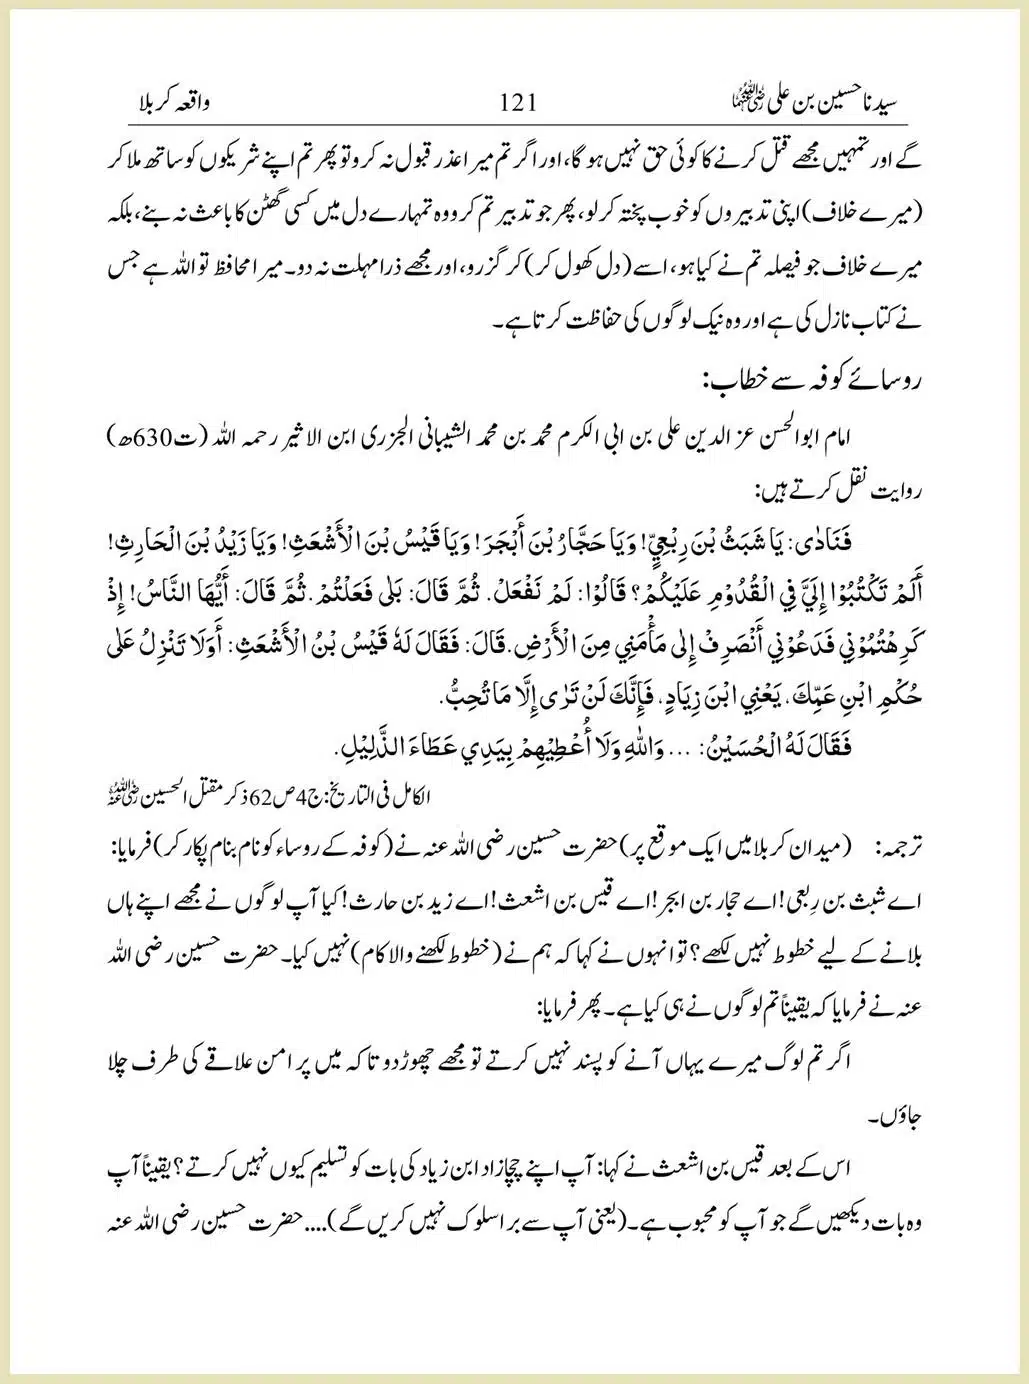 سیدنا حسین بن علی رضی اللہ عنہما 121 واقعہ کربلا
گے اور تمہیں مجھے قتل کرنے کا کوئی حق نہیں ہو گا، اور اگر تم میرا عذر قبول نہ کرو تو پھر تم اپنے شریکوں کو ساتھ ملا کر
(میرے خلاف) اپنی تدبیروں کو خوب پختہ کر لو، پھر جو تدبیر تم کرو وہ تمہارے دل میں کسی گھٹن کا باعث نہ بنے، بلکہ
میرے خلاف جو فیصلہ تم نے کیا ہو، اسے (دل کھول کر) کر گزرو، اور مجھے ذرا مہلت نہ دو۔ میرا محافظ تو اللہ ہے جس
نے کتاب نازل کی ہے اور وہ نیک لوگوں کی حفاظت کرتا ہے۔
روسائے کوفہ سے خطاب:
امام ابو الحسن عز الدین علی بن ابی الکرم محمد بن محمد الشیبانی الجزری ابن الاثیر رحمہ اللہ (ت630ھ)
روایت نقل کرتے ہیں:
فَنَادٰى: يَا شَبَثُ بْنَ رِبْعِيٍّ! وَيَا حَجَّارُ بْنَ أَبْجَرَ! وَيَا قَيْسُ بْنَ الْأَشْعَثِ! وَيَا زَيْدُ بْنَ الْحَارِثِ!
أَلَمْ تَكْتُبُوْا إِلَيَّ فِي الْقُدُوْمِ عَلَيْكُمْ؟ قَالُوْا: لَمْ نَفْعَلْ. ثُمَّ قَالَ: بَلٰى فَعَلْتُمْ. ثُمَّ قَالَ: أَيُّهَا النَّاسُ! إِذْ
كَرِهْتُمُوْنِي فَدَعُوْنِي أَنْصَرِفْ إِلٰى مَأْمَنِي مِنَ الْأَرْضِ. قَالَ: فَقَالَ لَهٗ قَيْسُ بْنُ الْأَشْعَثِ: أَوَلَا تَنْزِلُ عَلٰى
حُكْمِ ابْنِ عَمِّكَ، يَعْنِي ابْنَ زِيَادٍ، فَإِنَّكَ لَنْ تَرٰى إِلَّا مَا تُحِبُّ.
فَقَالَ لَهُ الْحُسَيْنُ: ... وَاللهِ وَلَا أُعْطِيْهِمْ بِيَدِي عَطَاءَ الذَّلِيْلِ.
الکامل فی التاریخ: ج4 ص62 ذکر مقتل الحسین رضی اللہ عنہ
ترجمہ: (میدان کربلا میں ایک موقع پر) حضرت حسین رضی اللہ عنہ نے (کوفہ کے روساء کو نام بنام پکار کر) فرمایا:
اے شبث بن رِبعی! اے حجار بن ابجر! اے قیس بن اشعث! اے زید بن حارث! کیا آپ لوگوں نے مجھے اپنے ہاں
بلانے کے لیے خطوط نہیں لکھے؟ تو انہوں نے کہا کہ ہم نے (خطوط لکھنے والا کام) نہیں کیا۔ حضرت حسین رضی اللہ
عنہ نے فرمایا کہ یقیناً تم لوگوں نے ہی کیا ہے۔ پھر فرمایا:
اگر تم لوگ میرے یہاں آنے کو پسند نہیں کرتے تو مجھے چھوڑ دو تاکہ میں پر امن علاقے کی طرف چلا
جاؤں۔
اس کے بعد قیس بن اشعث نے کہا: آپ اپنے چچازاد ابن زیاد کی بات کو تسلیم کیوں نہیں کرتے؟ یقیناً آپ
وہ بات دیکھیں گے جو آپ کو محبوب ہے۔ (یعنی آپ سے برا سلوک نہیں کریں گے).... حضرت حسین رضی اللہ عنہ